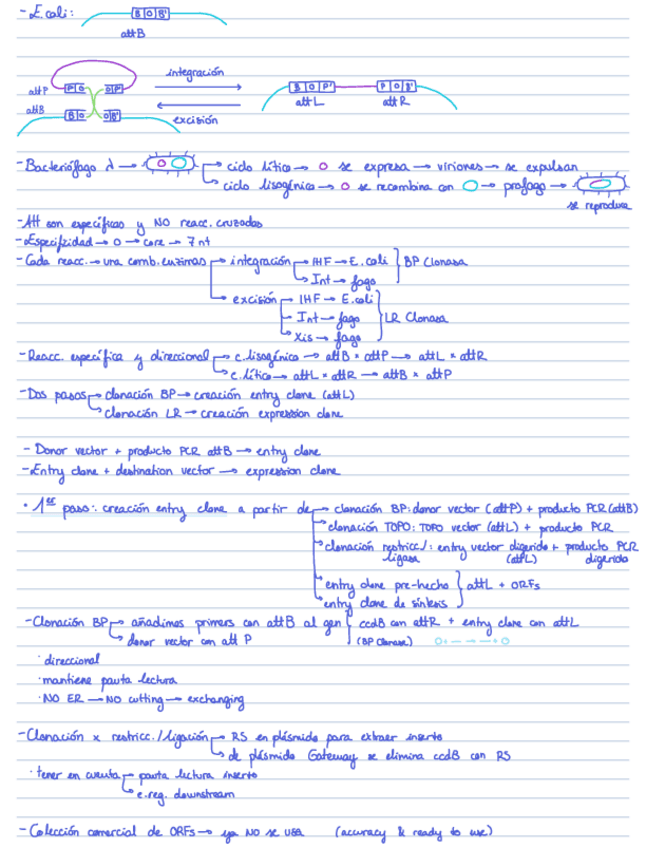 - E.coli: B O B'
attB
attP P O O P' integración B O P' P O B'
attB B O O B' excisión attL attR
- Bacteriófago λ → ciclo lítico → se expresa → viriones → se expulsan
ciclo lisogénico → se recombina con → profago →
se reproduce
- Att son específicas y NO reacc. cruzadas
- Especifidad → O → core → 7 nt
- Cada reacc. → una comb. enzimas integración → IHF → E.coli } BP Clonasa
Int → fago
excisión → IHF → E.coli
Int → fago } LR Clonasa
Xis → fago
- Reacc. específica y direccional c. lisogénico → attB × attP → attL × attR
c. lítico → attL × attR → attB × attP
- Dos pasos clonación BP → creación entry clone (attL)
clonación LR → creación expression clone
- Donor vector + producto PCR attB → entry clone
- Entry clone + destination vector → expression clone
· 1er paso: creación entry clone a partir de clonación BP: donor vector (attP) + producto PCR (attB)
clonación TOPO: TOPO vector (attL) + producto PCR
clonación restricc/: entry vector digerido + producto PCR
ligasa (attL) digerido
entry clone pre-hecho } attL + ORFs
entry clone de síntesis
- Clonación BP añadimos primers con attB al gen } ccdB con attR + entry clone con attL
donor vector con att P (BP Clonasa)
· direccional
· mantiene pauta lectura
· NO ER → NO cutting → exchanging
- Clonación x restricc./ligación RS en plásmido para extraer inserto
de plásmido Gateway se elimina ccdB con RS
· tener en cuenta pauta lectura inserto
e. reg. downstream
- Colección comercial de ORFs → ya NO se usa (accuracy & ready to use)